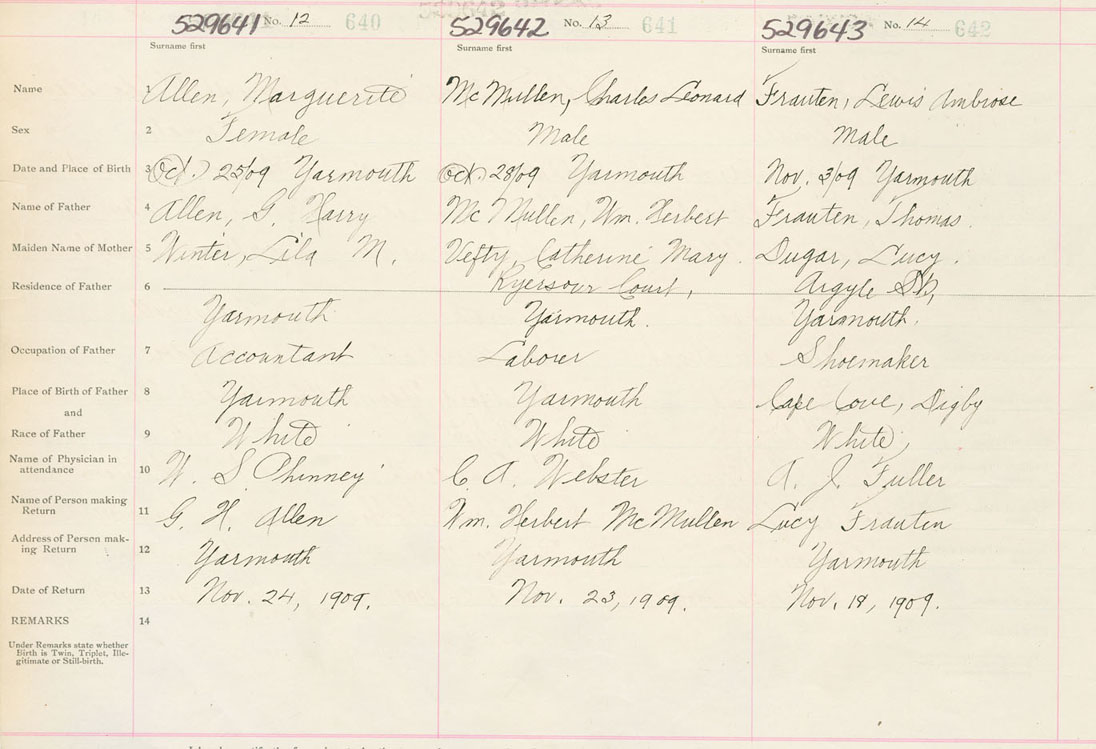 529641 No. 12 640 529642 No. 13 641 529643 No. 14 642
Surname first Surname first Surname first
Name 1 Allen, Marguerite McMullen, Charles Leonard Frauten, Lewis Ambrose
Sex 2 Female Male Male
Date and Place of Birth 3 Oct. 25/09 Yarmouth Oct. 28/09 Yarmouth Nov. 3/09 Yarmouth
Name of Father 4 Allen, G. Harry McMullen, Wm. Herbert Frauten, Thomas.
Maiden Name of Mother 5 Winter, Lila M. Vefty, Catherine Mary. Dugar, Lucy.
Residence of Father 6 Court, Argyle St,
Yarmouth Yarmouth. Yarmouth.
Occupation of Father 7 Accountant Laborer Shoemaker
Place of Birth of Father 8 Yarmouth Yarmouth Cape Cove, Digby
and
Race of Father 9 White White White
Name of Physician in
attendance 10 W. S. Phinney C. A. Webster A. J. Fuller
Name of Person making
Return 11 G. H. Allen Wm. Herbert McMullen Lucy Frauten
Address of Person mak-
ing Return 12 Yarmouth Yarmouth Yarmouth
Date of Return 13 Nov. 24, 1909. Nov. 23, 1909. Nov. 18, 1909.
REMARKS 14
Under Remarks state whether
Birth is Twin, Triplet, Ille-
gitimate or Still-birth.